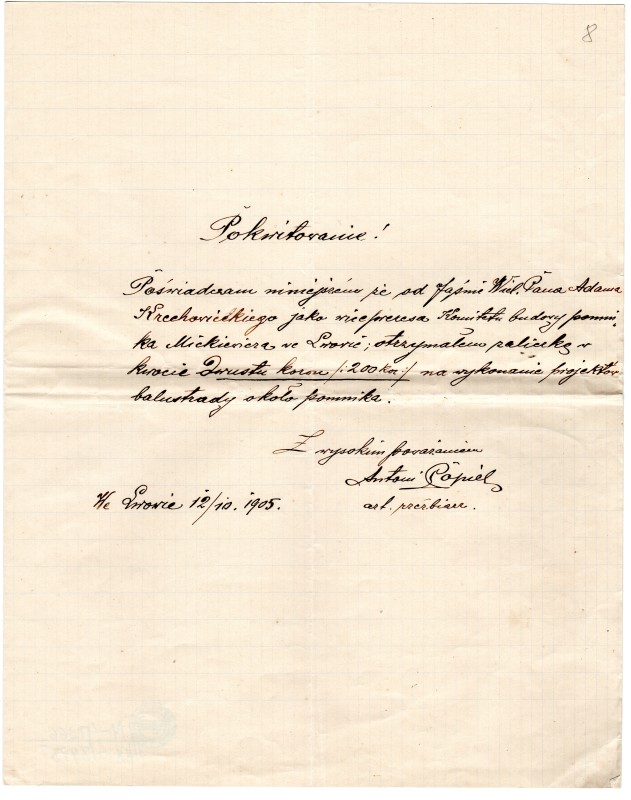 8
Pokwitowanie!
Poświadczam niniejszém że od Jaśnie Wiel. Pana Adama
Krechowieckiego jako viceprezesa Komitetu budowy pomni,
ka Mickiewicza we Lwowie; otrzymałem zaliczkę w
kwocie Dwustu koron /: 200 kor :/ na wykonanie projektów
balustrady około pomnika.
Z wysokim poważaniem
Antoni Popiel
We Lwowie 12/10. 1905.
art. rzeźbiarz.